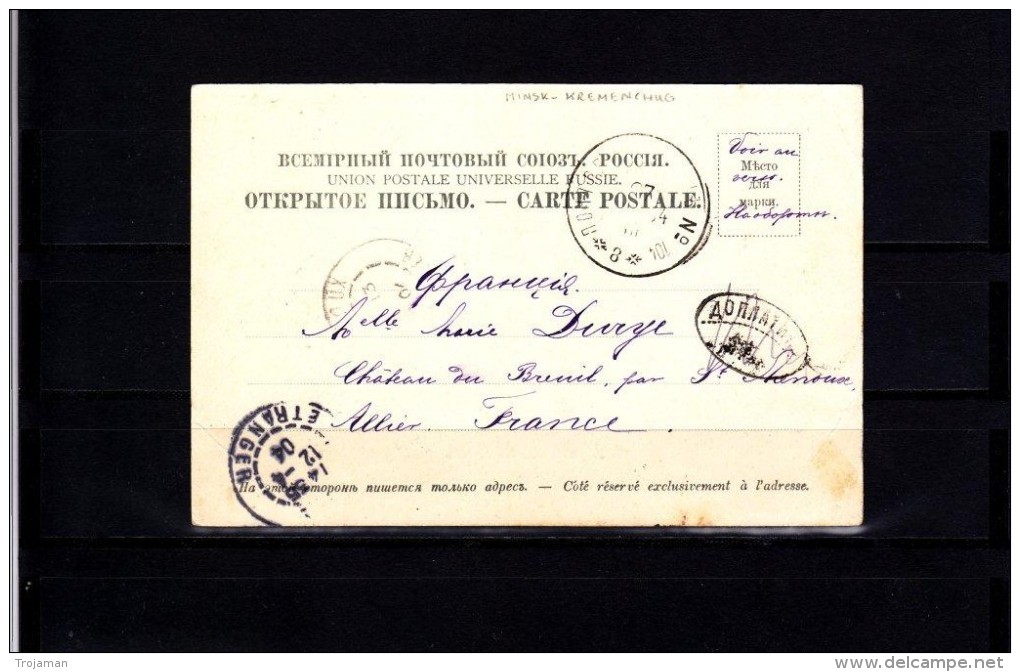 MINSK - KREMENCHUG
ВСЕМІРНЫЙ ПОЧТОВЫЙ СОЮЗЪ. РОССІЯ.
UNION POSTALE UNIVERSELLE RUSSIE.
ОТКРЫТОЕ ПИСЬМО. — CARTE POSTALE.
Voir au
Мѣсто
verso.
для
марки.
На оборотѣ.
№
8
101
Франція.
ДОПЛАТИТЬ
Melle Marie
Château du Breuil, par St Menoux,
Allier. France.
ETRANGER
12
04
На этой сторонѣ пишется только адресъ. — Côté réservé exclusivement à l'adresse.
Trojaman
delcampe.net